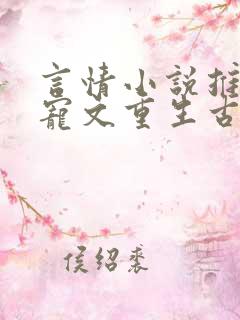 言情小说推
寵文重生古
侯绍裘